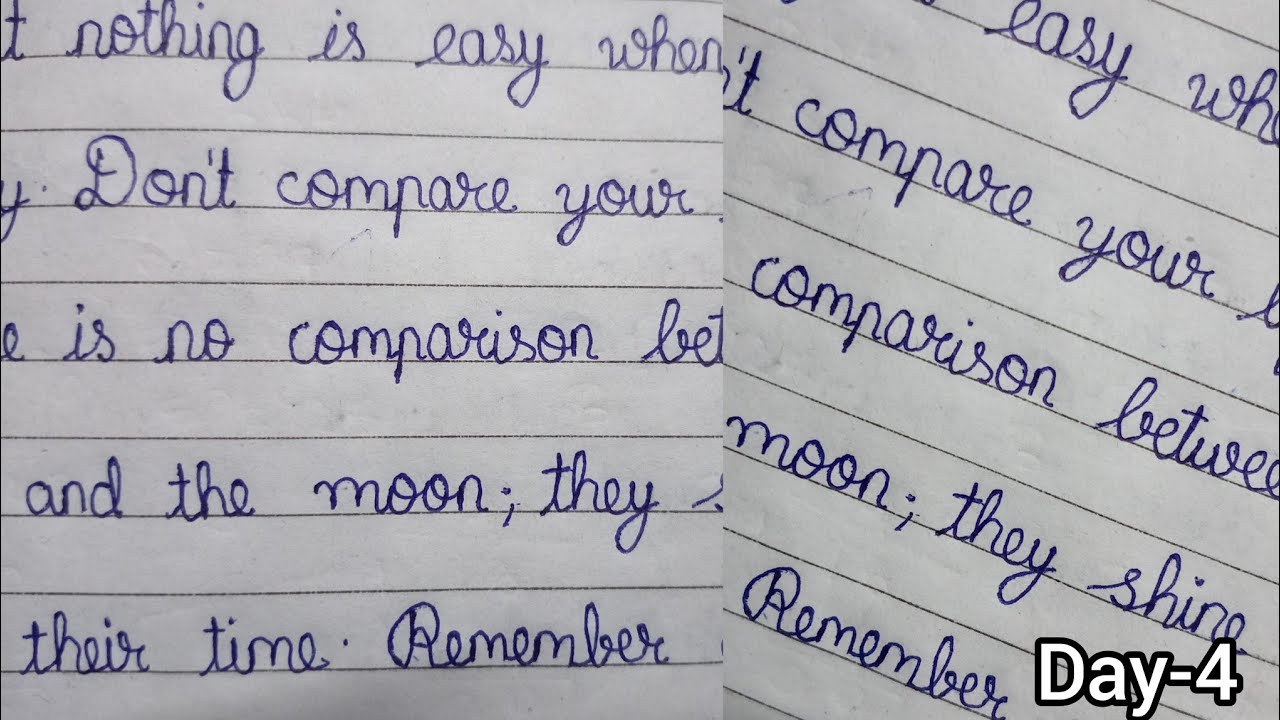 t nothing is easy when
y. Don't compare your
e is no comparison bet
and the moon; they s
their time. Remember
easy whe
't compare your b
comparison betwee
moon; they shine
Remember
Day-4